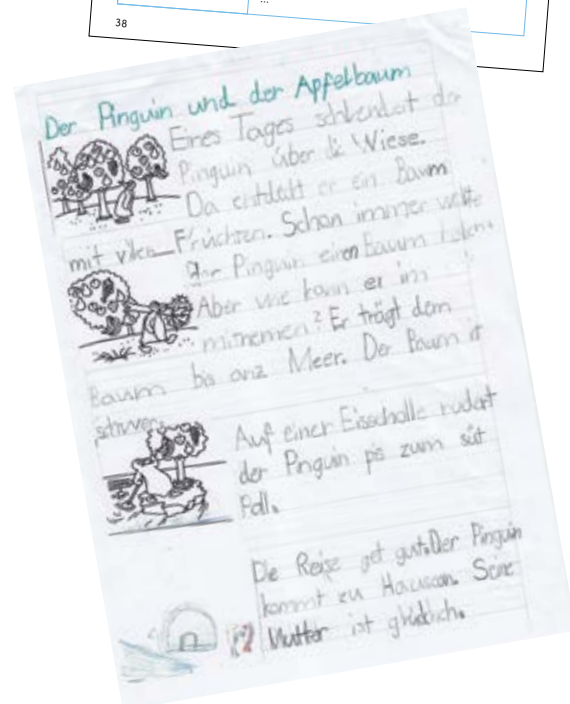 ...
38
Der Pinguin und der Apfelbaum
Eines Tages schlendert der
Pinguin über die Wiese.
Da entdekt er ein Baum
mit vilen Früchten. Schon immer wollte
der Pinguin einen Baum haben.
Aber wie kann er im
mitnemen? Er trägt dem
Baum bis anz Meer. Der Baum ist
schwer.
Auf einer Eisscholle rudert
der Pinguin pis zum süt
Poll.
Die Reise get gut. Der Pinguin
kommt zu Hause an. Seine
Mutter ist glücklich.